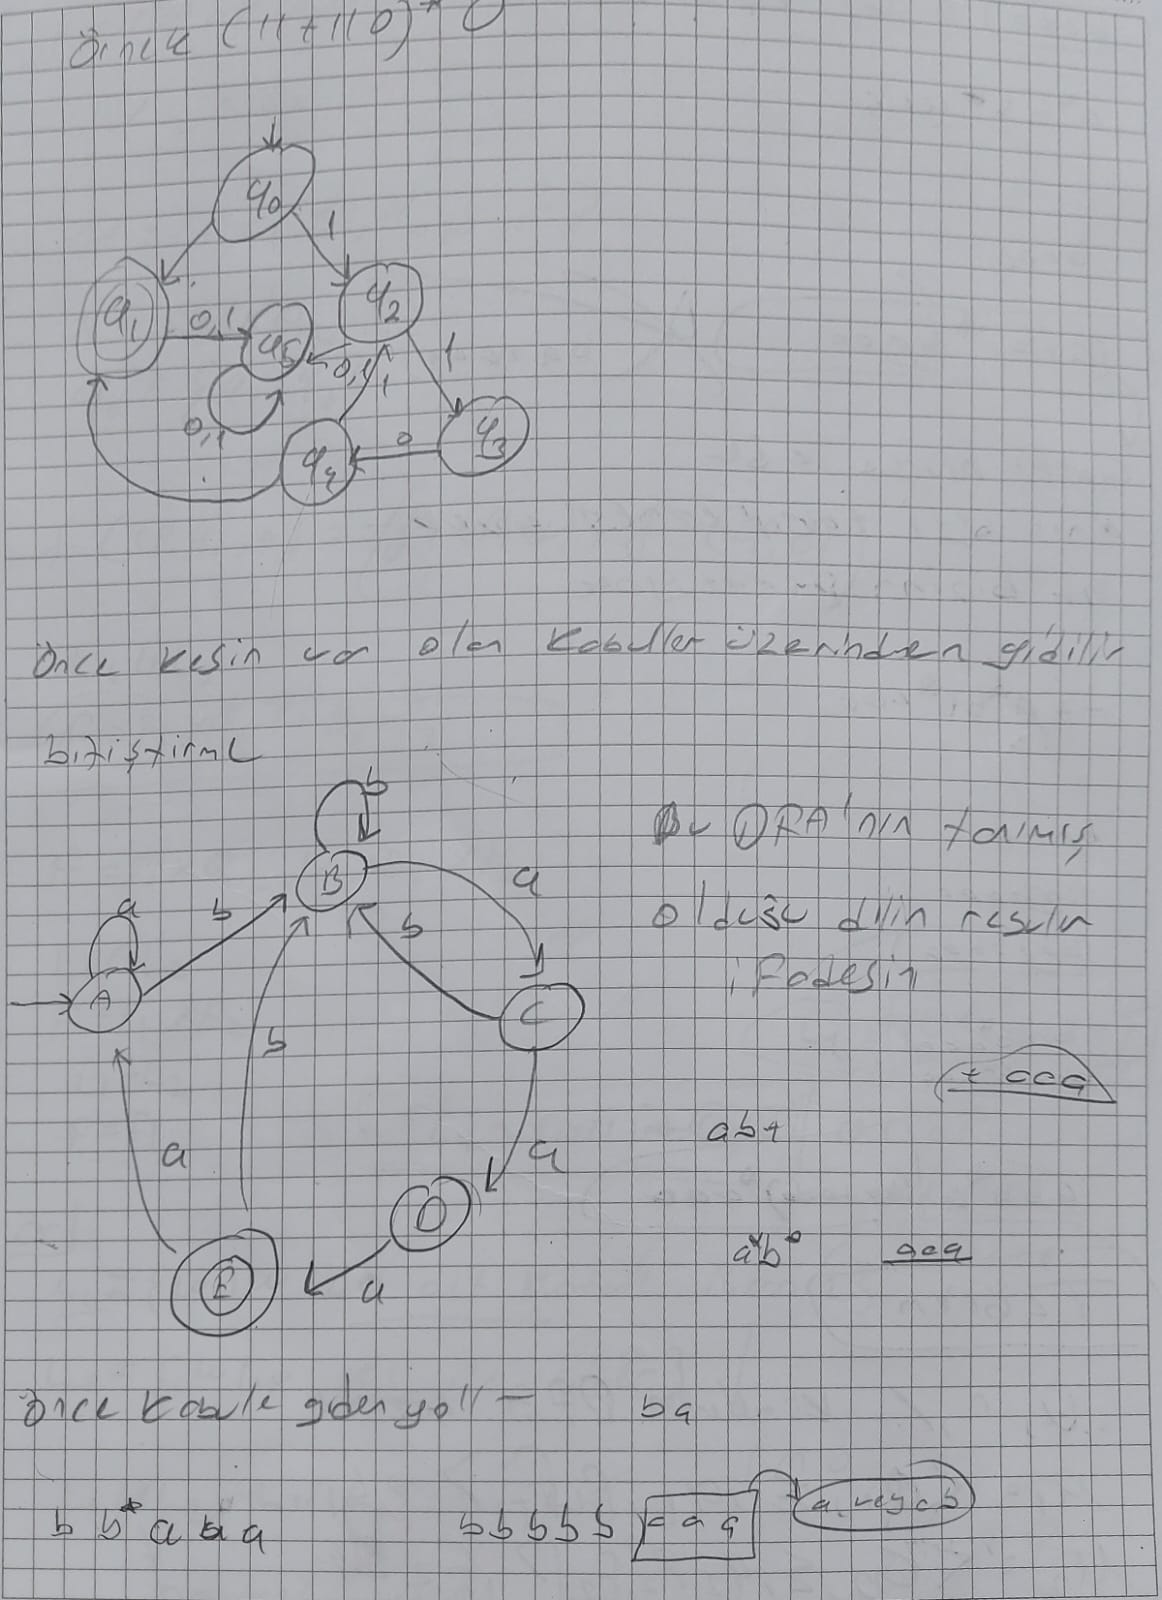 Örnek (11+110)* 0
q0
1
q1
0,1
q5
q2
0,1
1
1
0,1
q4
0
q3
Önce kesin var olan kabuller üzerinden gidilir
bitiştirme
b
B
a
a
b
b
A
C
b
a
a
D
E
a
Bu DRA'nın tanımış
olduğu dilin regular
ifadesin
+ aaa
ab+
a*b*
aaa
Önce kabule giden yol
ba
b b* a a a
b b b b b a a a
a veya b